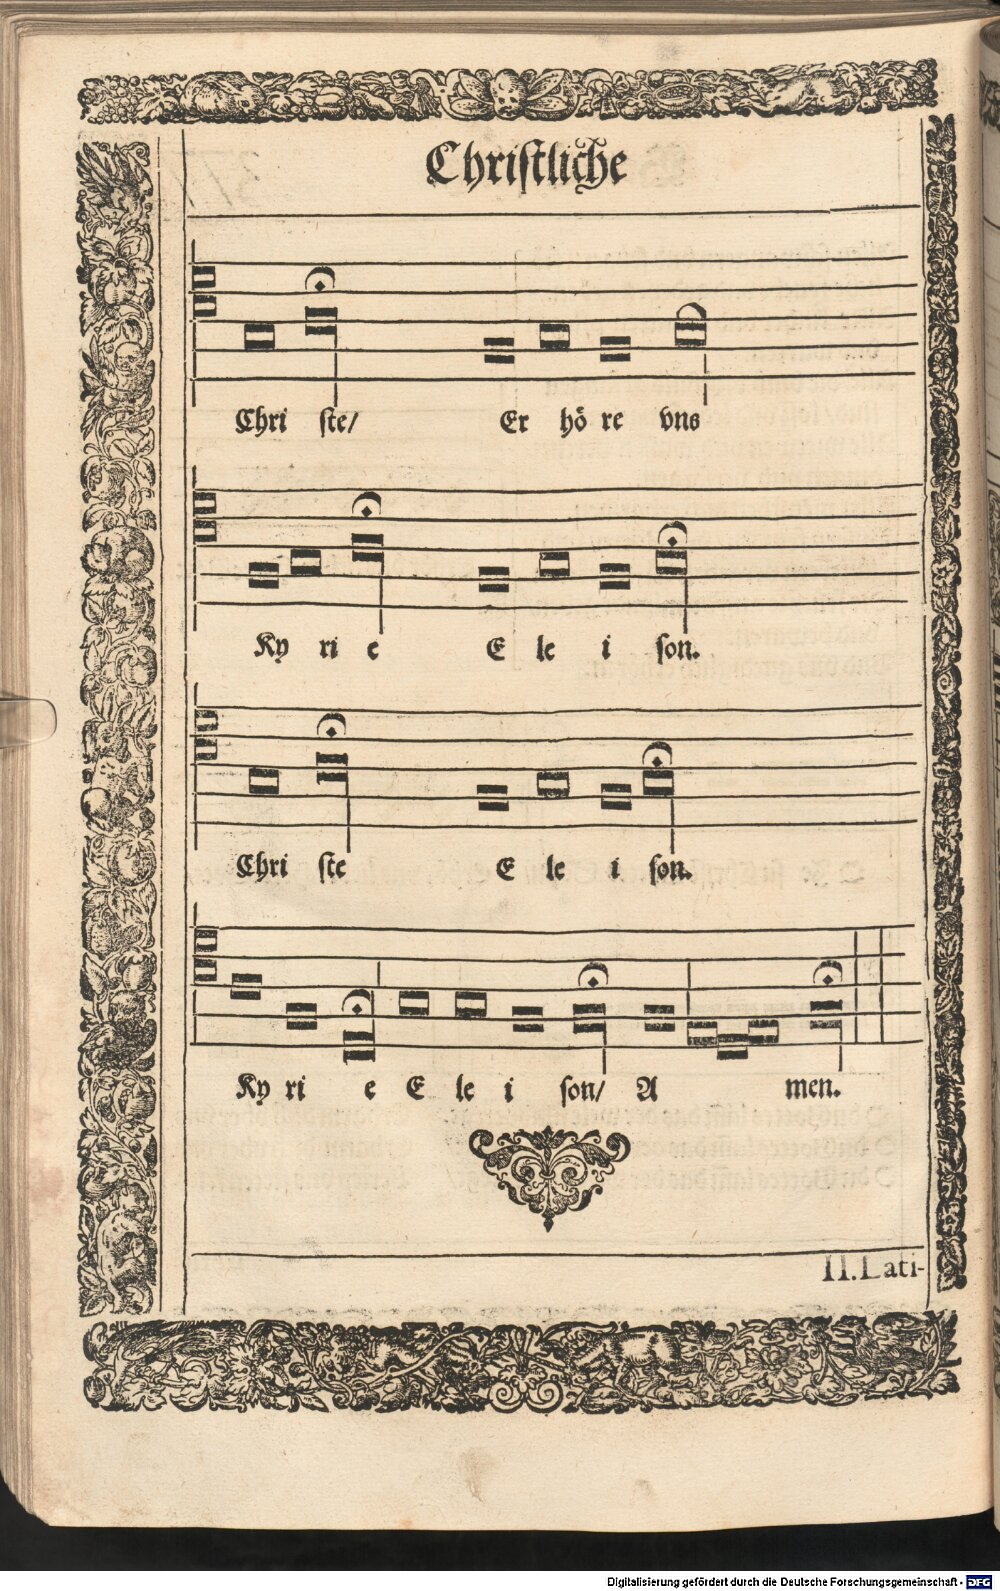 Chriſtliche
Chri ſte/ Er hö re vns
Ky ri e E le i ſon.
Chri ſte E le i ſon.
Ky ri e E le i ſon/ A men.
II. Lati-
Digitalisierung gefördert durch die Deutsche Forschungsgemeinschaft - DFG